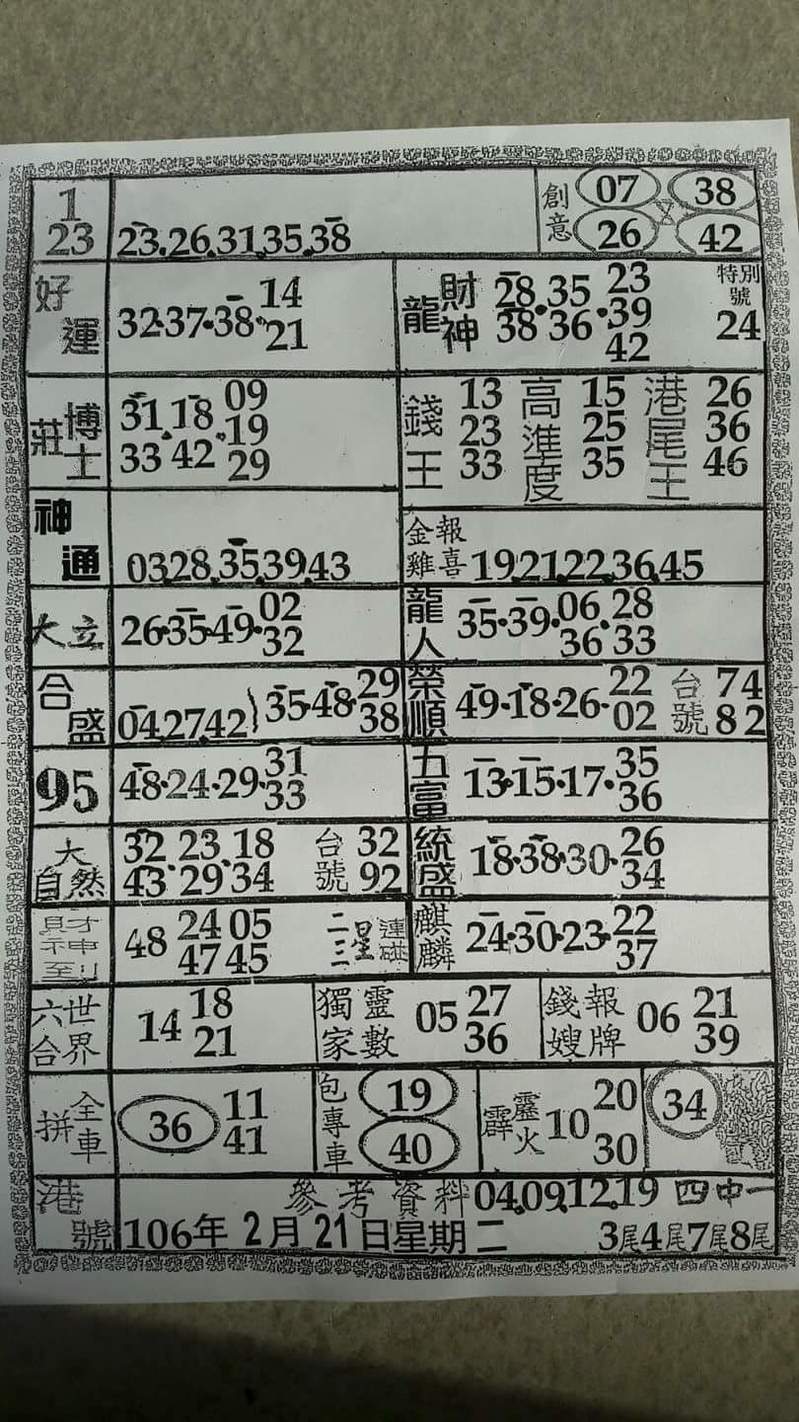 1
23
23.26.31.35.38
創意
07 38
26 42
好運
32.37.38.14
21
財神龍
28.35.23
38.36.39
42
特別號
24
莊博士
31.18.09
33.42.19
29
錢王
13
23
33
高準度
15
25
35
港尾王
26
36
46
神通
03.28.35.39.43
金雞報喜
19.21.22.36.45
大立
26.35.49.02
32
龍人
35.39.06.28
36 33
合盛
04.27.42 35.48.29
38
榮順
49.18.26.22
02
台號
74
82
95
48.24.29.31
33
五富
13.15.17.35
36
大自然
32.23.18
43.29.34
台號
32
92
統盛
18.38.30.26
34
財神到
48 24 05
47 45
二三星連碰
麒麟
24.30.23.22
37
六合世界
14 18
21
獨家靈數
05 27
36
錢嫂報牌
06 21
39
拼全車
36 11
41
包專車
19
40
霹靂火
10 20
30
34
港號
參考資料 04.09.12.19 四中一
106年2月21日星期二 3尾4尾7尾8尾